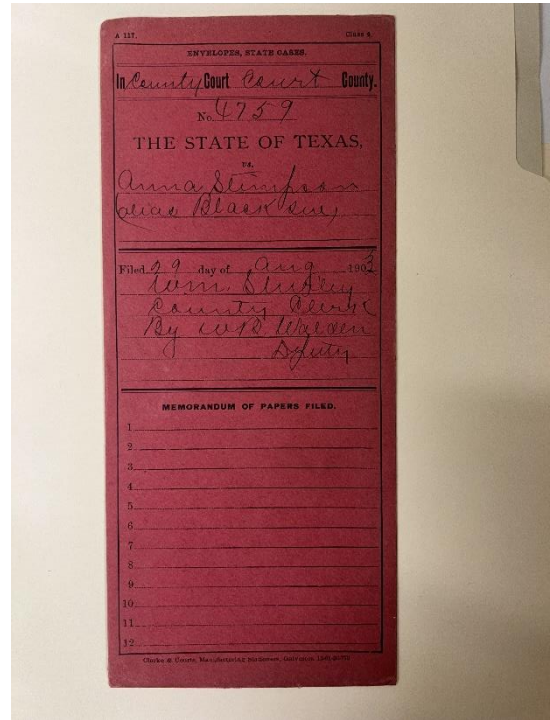 A 117. Class 4.
ENVELOPES, STATE CASES.
In County Court Court County.
No. 4759
THE STATE OF TEXAS,
vs.
Anna Stimpson
(alias Black
Filed 29 day of Aug 1903
Wm.
County Clerk
By W R Walden
Deputy
MEMORANDUM OF PAPERS FILED.
1
2
3
4
5
6
7
8
9
10
11
12
Clarke & Courts, Manufacturing Stationers, Galveston